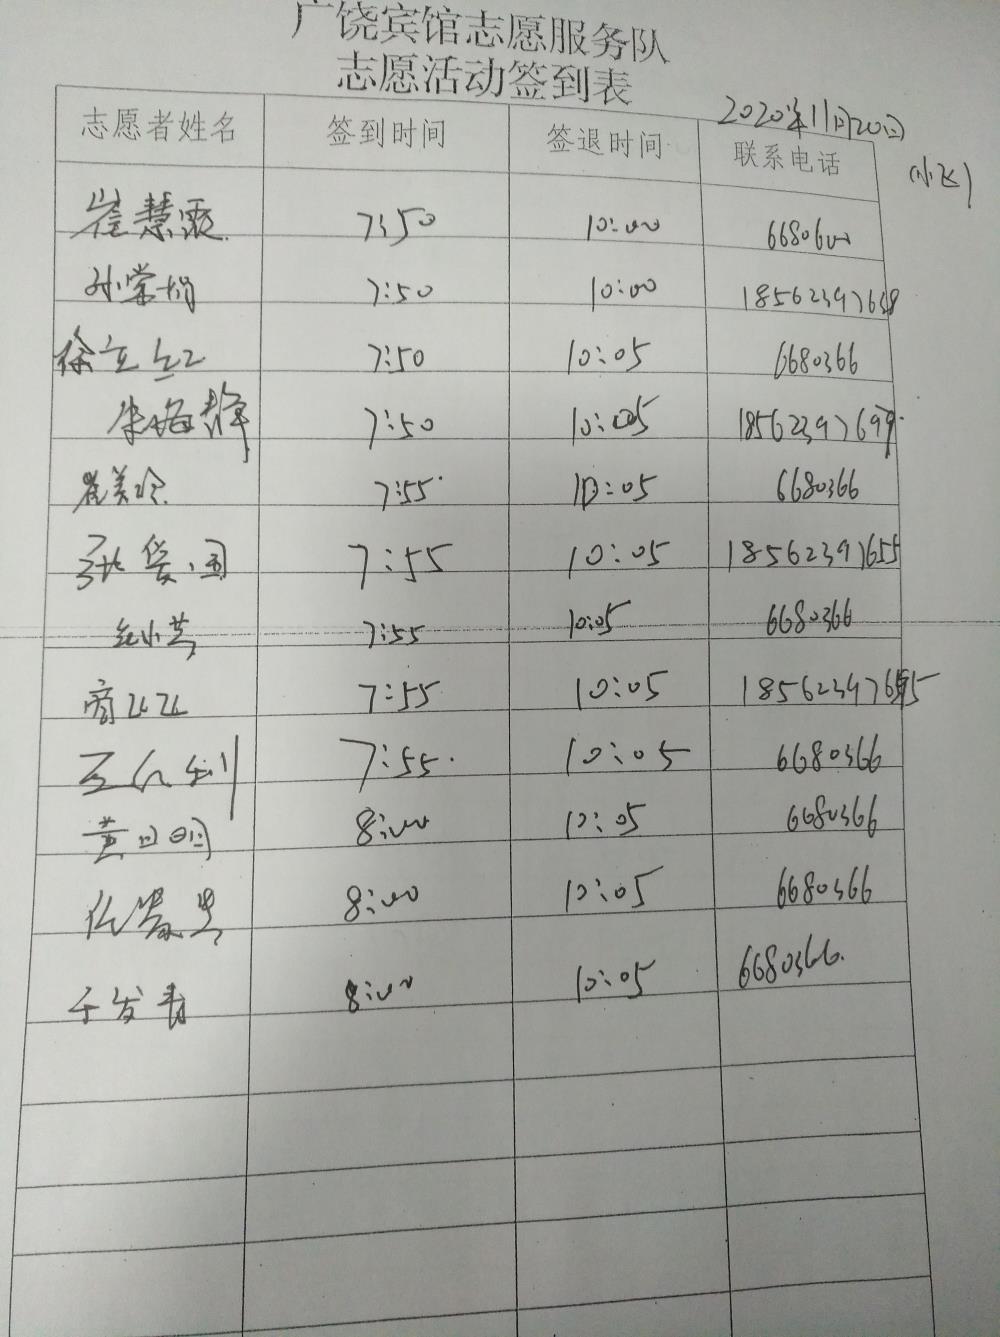 广饶宾馆志愿服务队
志愿活动签到表
2020年11月20日
志愿者姓名 签到时间 签退时间 联系电话
崔慧霞 7:50 10:00 6680600
孙荣娟 7:50 10:00 18562397658
徐立红 7:50 10:05 6680366
朱海静 7:50 10:05 18562397699
崔美玲 7:55 10:05 6680366
张爱国 7:55 10:05 18562397655
7:55 10:05 6680366
商从从 7:55 10:05 18562397695
7:55 10:05 6680366
黄日明 8:00 10:05 6680366
8:00 10:05 6680366
于发青 8:00 10:05 6680366